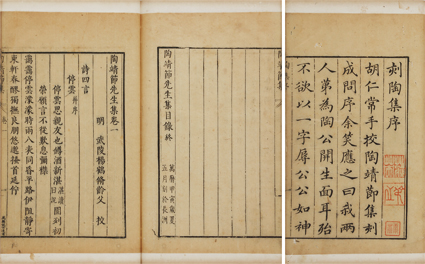 刻陶集序
胡仁常手挍陶靖節集刻
成問序余笑應之曰我兩
人弟為陶公開生面耳殆
不欲以一字孱公公如神
陶靖節先生集目錄終
萬曆
五月
陶靖節先生集卷一
明 武陵楊鶴脩齡父校
詩四言
停雲并序
停雲思親友也罇酒新湛園列初
榮願言不從歎息彌襟
靄靄停雲濛濛時雨八表同昏平路伊阻靜寄
東軒春醪獨撫良朋悠邈搔首延佇